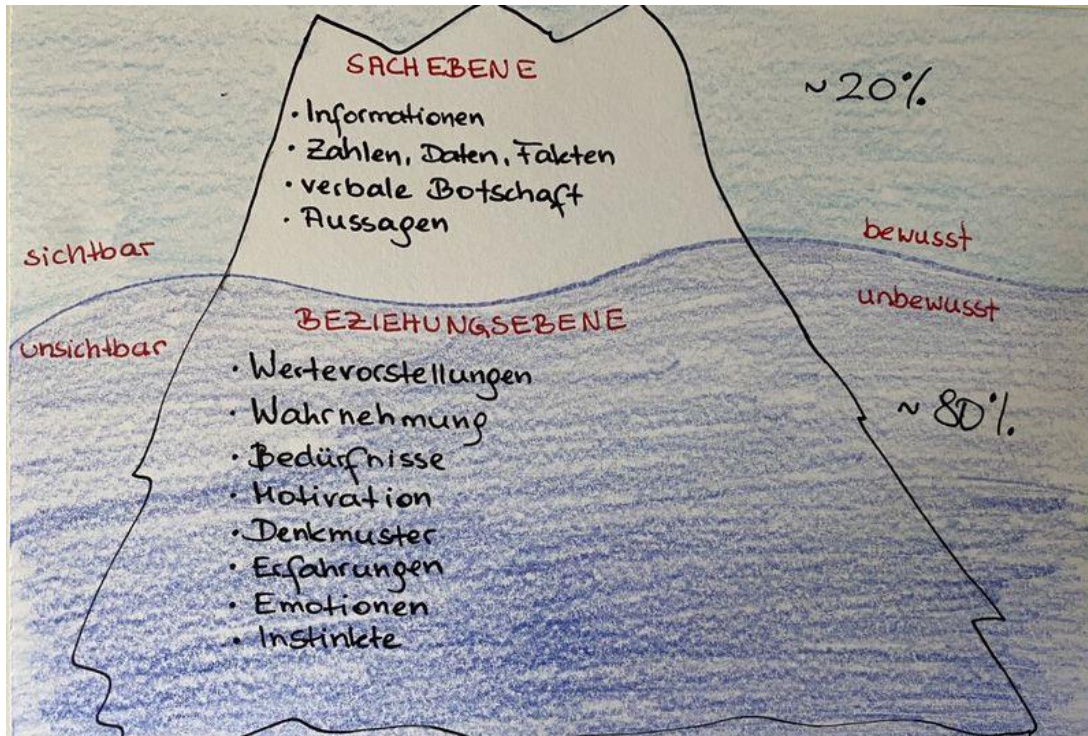 SACHEBENE
~20%
· Informationen
· Zahlen, Daten, Fakten
· verbale Botschaft
· Aussagen
sichtbar
bewusst
unsichtbar
unbewusst
BEZIEHUNGSEBENE
· Wertevorstellungen
· Wahrnehmung
~80%
· Bedürfnisse
· Motivation
· Denkmuster
· Erfahrungen
· Emotionen
· Instinkte